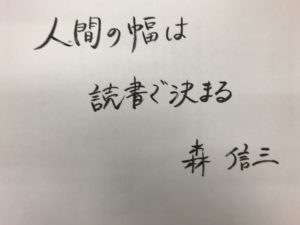 人間の幅は
読書で決まる
森 信三